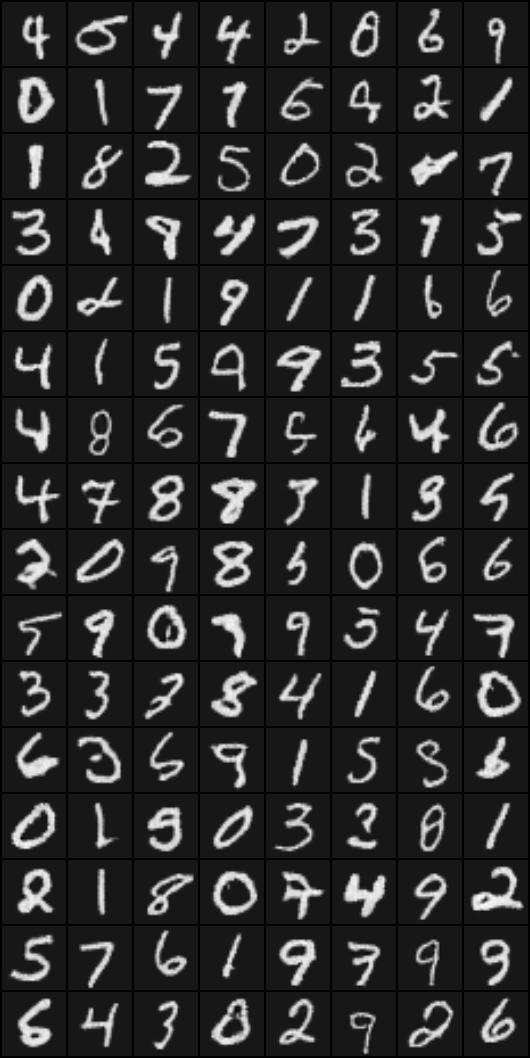 4 5 4 4 2 0 6 9
0 1 7 7 6 9 2 1
1 8 2 5 0 2 7
3 4 9 4 7 3 7 5
0 2 1 9 1 1 6 6
4 1 5 9 9 3 5 5
4 8 6 7 5 6 4 6
4 7 8 8 3 1 8 5
2 0 9 8 5 0 6 6
5 9 0 9 9 5 4 7
3 3 2 8 4 1 6 0
6 3 6 9 1 5 8 6
0 1 9 0 3 2 0 1
8 1 8 0 7 4 9 2
5 7 6 1 9 3 9 9
6 4 3 0 2 9 2 6